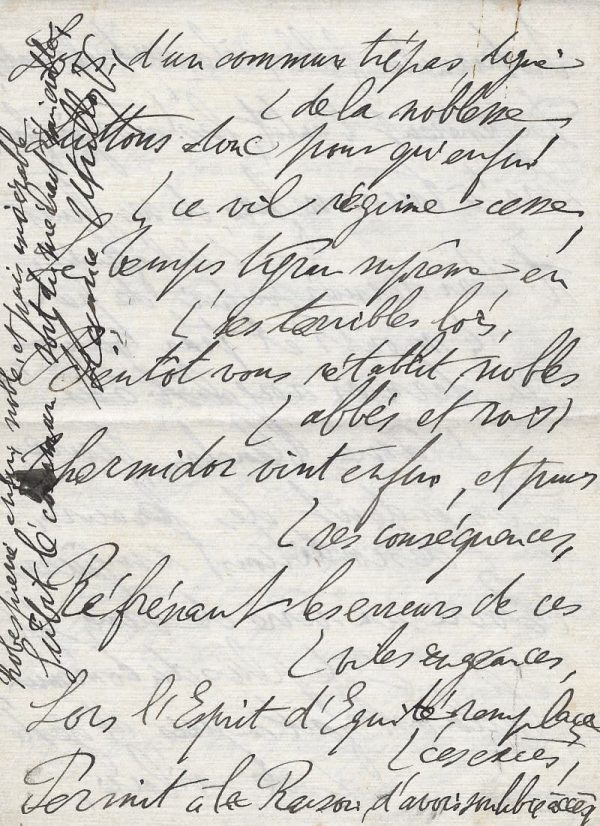 Lors, d'un commun trépas, digne
de la noblesse,
Luttons donc pour qu'enfin
ce vil régime cesse,
Le temps tyran suprême en
ses terribles lois,
Bientôt vous rétablit, nobles
abbés et rois!
Thermidor vint enfin, et puis
ses conséquences,
Réfrénant les erreurs de ces
viles engeances,
Lors l'Esprit d'Equité remplaça
ces excès,
Permit à la Raison, d'avoir libre accès
Robespierre enfin, noble et puis misérable
Subit le commun sort
Maurice Utrillo, V,